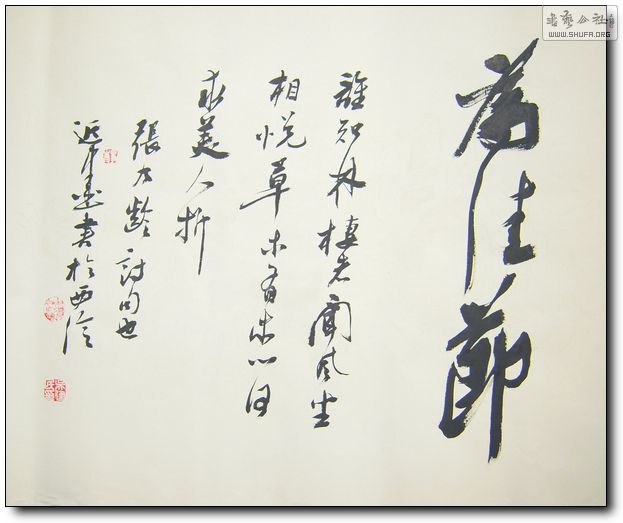 書藝公社
WWW.SHUFA.ORG
為佳節
誰知林棲者聞風坐
相悅草木有本心何
求美人折
張九齡詩句也
書於西泠